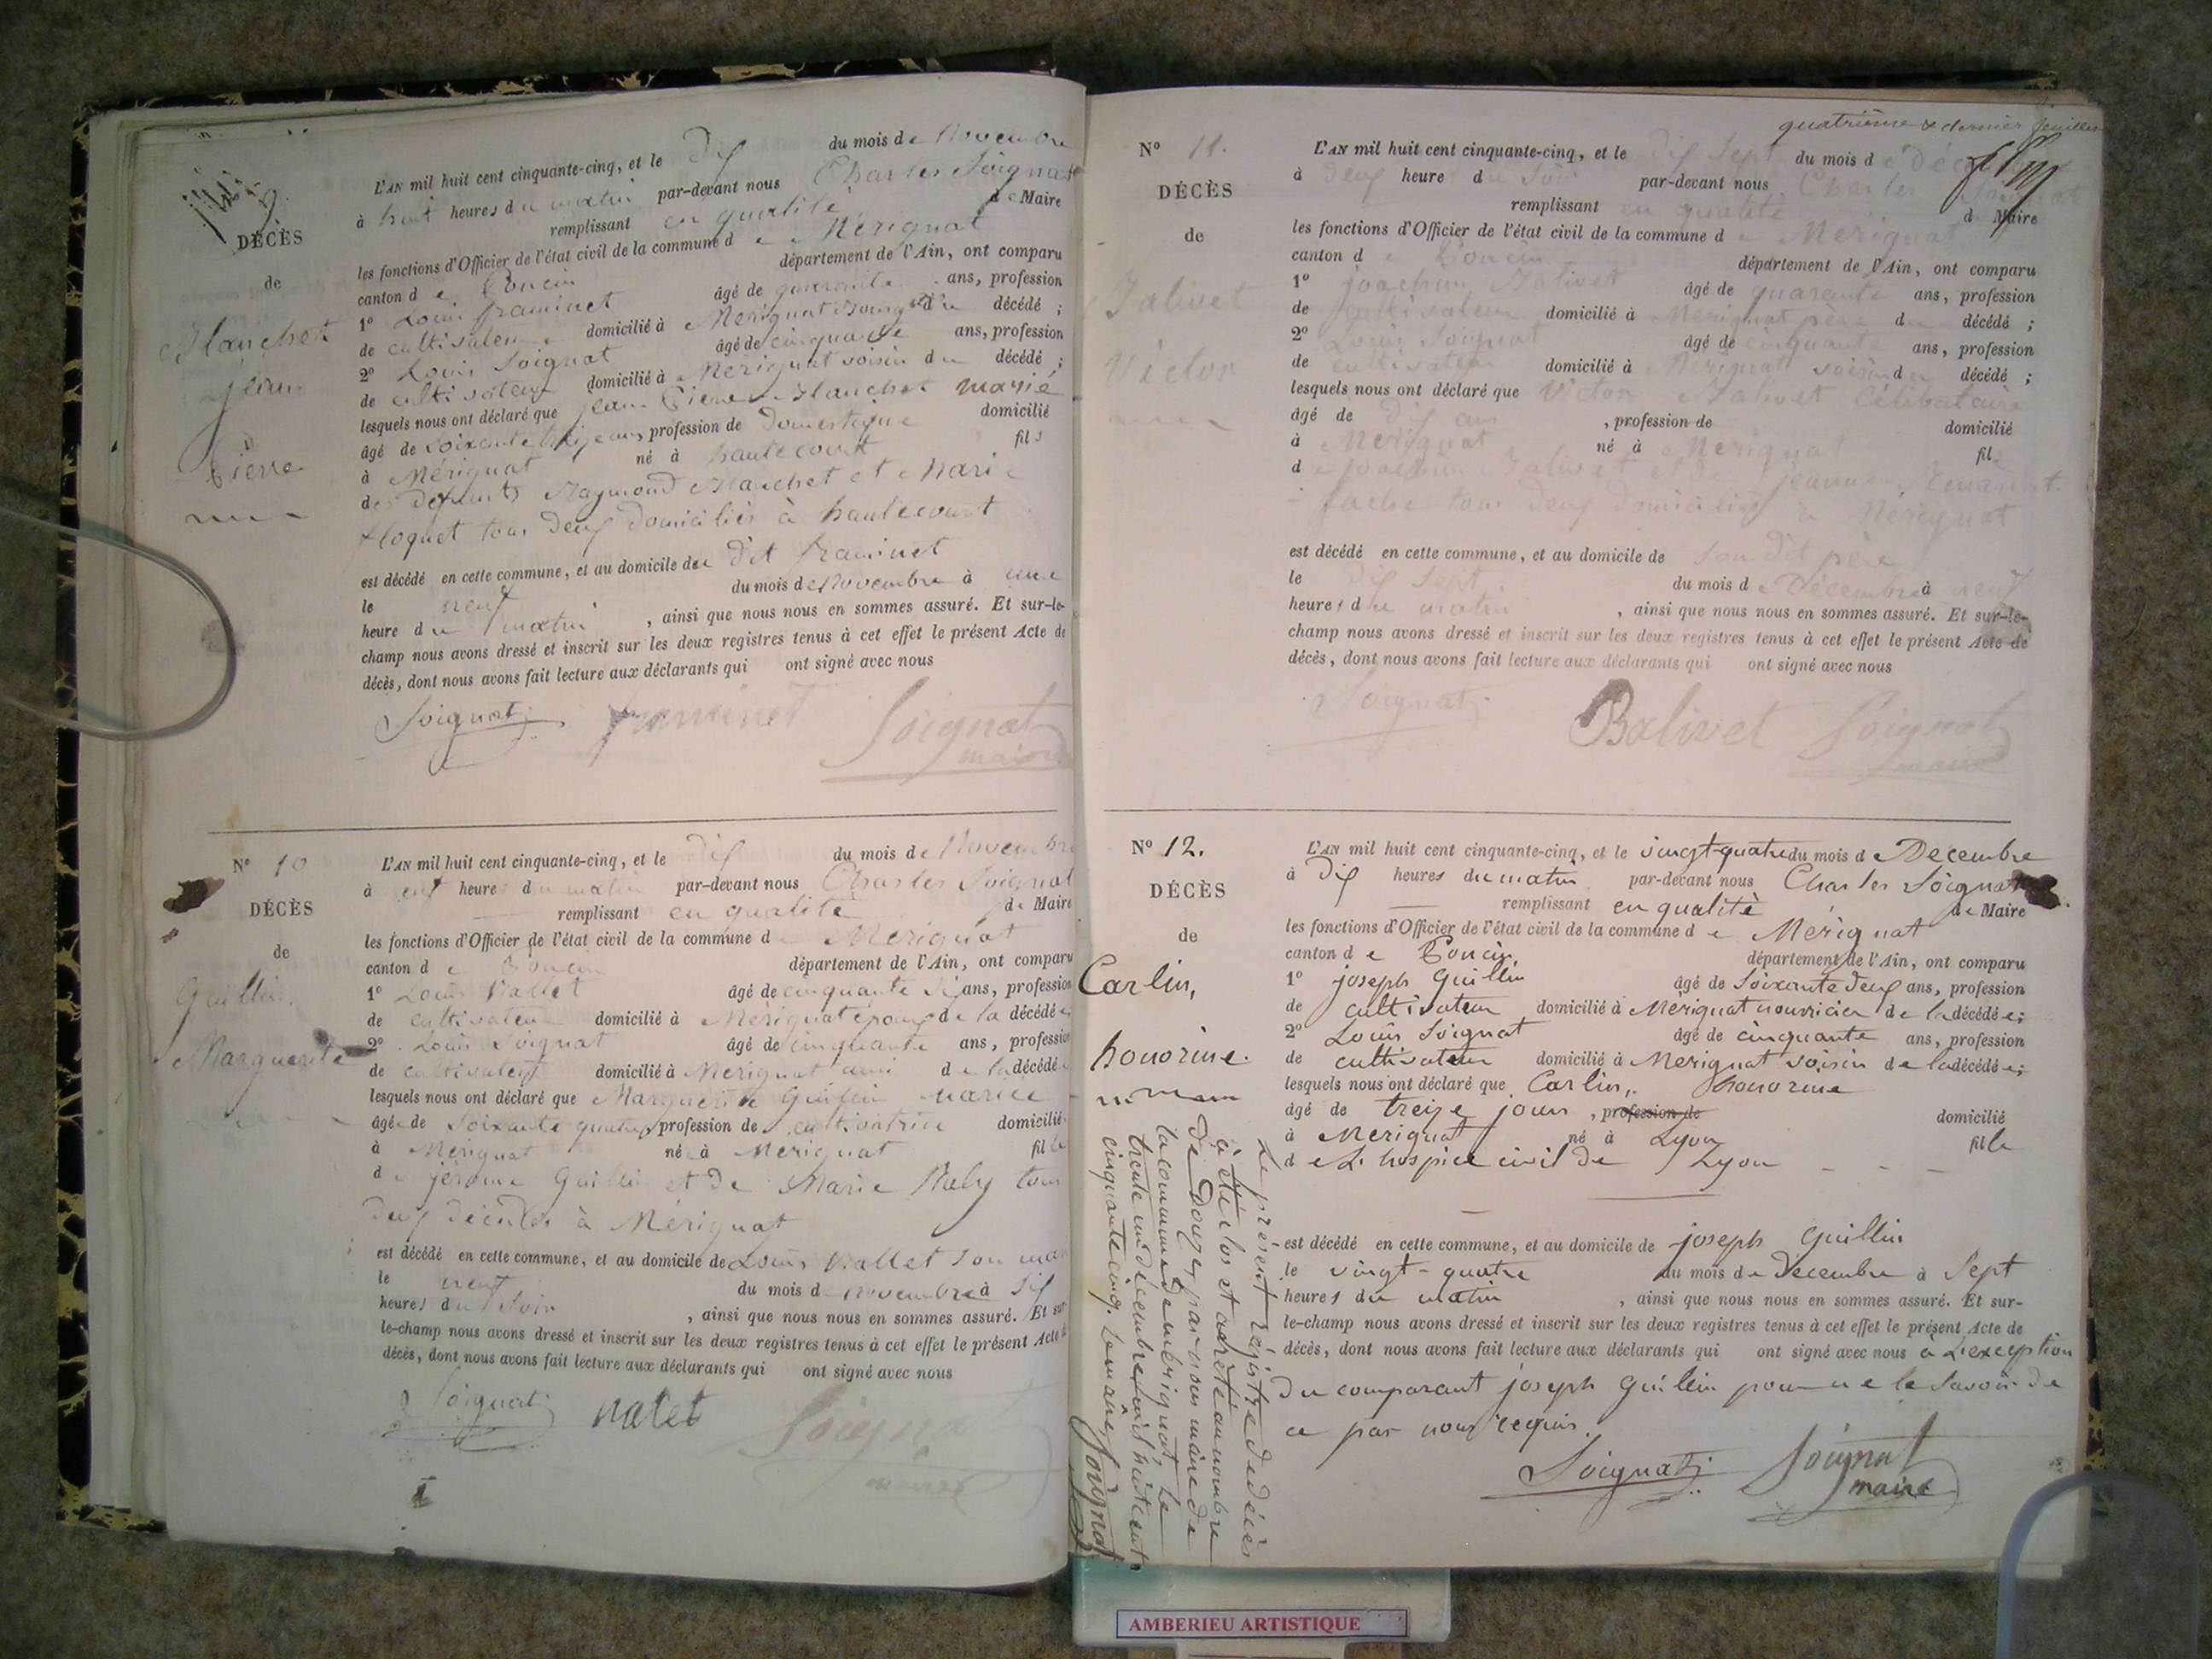 N° 9.
DÉCÈS
de
Blanchet
jean
Pierre
L'AN mil huit cent cinquante-cinq, et le dix du mois de Novembre
à huit heures du matin par-devant nous Charles Soignat
remplissant en qualité de Maire
les fonctions d'Officier de l'état civil de la commune de Mérignat
canton de Poncin département de l'Ain, ont comparu
1° Louis framinet âgé de quarante ans, profession
de cultivateur domicilié à Mérignat du décédé ;
2° Louis Soignat âgé de cinquante ans, profession
de cultivateur domicilié à Mérignat voisin du décédé ;
lesquels nous ont déclaré que jean Pierre Blanchet marié
âgé de soixante ans, profession de Domestique domicilié
à Mérignat né à hautecourt fils
des défunts Raymond Blanchet et Marie
floquet tous deux domiciliés à hautecourt
est décédé en cette commune, et au domicile du dit framinet
le neuf du mois de Novembre à une
heure du matin , ainsi que nous nous en sommes assuré. Et sur-le-
champ nous avons dressé et inscrit sur les deux registres tenus à cet effet le présent Acte de
décès, dont nous avons fait lecture aux déclarants qui ont signé avec nous
Soignat framinet Soignat
maire
N° 10
DÉCÈS
de
Guillin
Marguerite
L'AN mil huit cent cinquante-cinq, et le dix du mois de Novembre
à neuf heures du matin par-devant nous Charles Soignat
remplissant en qualité de Maire
les fonctions d'Officier de l'état civil de la commune de Mérignat
canton de Poncin département de l'Ain, ont comparu
1° Louis Nallet âgé de cinquante six ans, profession
de cultivateur domicilié à Mérignat époux de la décédée;
2° Louis Soignat âgé de cinquante ans, profession
de cultivateur domicilié à Mérignat ami de la décédée
lesquels nous ont déclaré que Marguerite Guillin mariée
âgée de soixante quatre profession de cultivatrice domiciliée
à Mérignat née à Mérignat fille
de jérôme Guillin et de Marie tous
deux décédés à Mérignat
est décédé en cette commune, et au domicile de Louis Nallet son mari
le neuf du mois de novembre à six
heures du soir , ainsi que nous nous en sommes assuré. Et sur
le-champ nous avons dressé et inscrit sur les deux registres tenus à cet effet le présent Acte de
décès, dont nous avons fait lecture aux déclarants qui ont signé avec nous
Soignat nalet Soignat
maire
quatrième & dernier feuillet
N° 11.
DÉCÈS
de
Balivet
Victor
L'AN mil huit cent cinquante-cinq, et le dix sept du mois de Décembre
à deux heure du soir par-devant nous Charles Soignat
remplissant en qualité d Maire
les fonctions d'Officier de l'état civil de la commune de Mérignat
canton de Poncin département de l'Ain, ont comparu
1° joachim Balivet âgé de quarante ans, profession
de cultivateur domicilié à Mérignat père du décédé ;
2° Louis Soignat âgé de cinquante ans, profession
de cultivateur domicilié à Mérignat voisin du décédé ;
lesquels nous ont déclaré que Victor Balivet Célibataire
âgé de dix ans , profession de domicilié
à Mérignat né à Mérignat fils
de joachim Balivet et de jeanne
tous deux domiciliés à Mérignat
est décédé en cette commune, et au domicile de son dit père
le dix sept du mois de Décembre à neuf
heures du matin , ainsi que nous nous en sommes assuré. Et sur-le-
champ nous avons dressé et inscrit sur les deux registres tenus à cet effet le présent Acte de
décès, dont nous avons fait lecture aux déclarants qui ont signé avec nous
Soignat Balivet Soignat
maire
N° 12.
DÉCÈS
de
Carlin,
honorine.
L'AN mil huit cent cinquante-cinq, et le vingt-quatre du mois de Decembre
à dix heures du matin par-devant nous Charles Soignat
remplissant en qualité de Maire
les fonctions d'Officier de l'état civil de la commune de Mérignat
canton de Poncin, département de l'Ain, ont comparu
1° joseph Guillin âgé de soixante deux ans, profession
de cultivateur domicilié à Merignat nourricier de la décédée;
2° Louis Soignat âgé de cinquante ans, profession
de cultivateur domicilié à Merignat voisin de la décédée;
lesquels nous ont déclaré que Carlin, honorine
âgé de treize jours , profession de domicilié
à Merignat né à Lyon fille
de L'hospice civil de Lyon
est décédé en cette commune, et au domicile de joseph Guillin
le vingt-quatre du mois de Décembre à Sept
heures du matin , ainsi que nous nous en sommes assuré. Et sur-
le-champ nous avons dressé et inscrit sur les deux registres tenus à cet effet le présent Acte de
décès, dont nous avons fait lecture aux déclarants qui ont signé avec nous à L'exception
du comparant joseph Guillin pour ne le savoir de
ce par nous requis.
Soignat Soignat
maire
Le présent régistre de décès
à été clos et arrêté au nombre
de Douze, par nous maire de
la commune de mérignat, Le
trente un décembre mil huit cent
cinquante cinq. Le maire, Soignat
AMBERIEU ARTISTIQUE